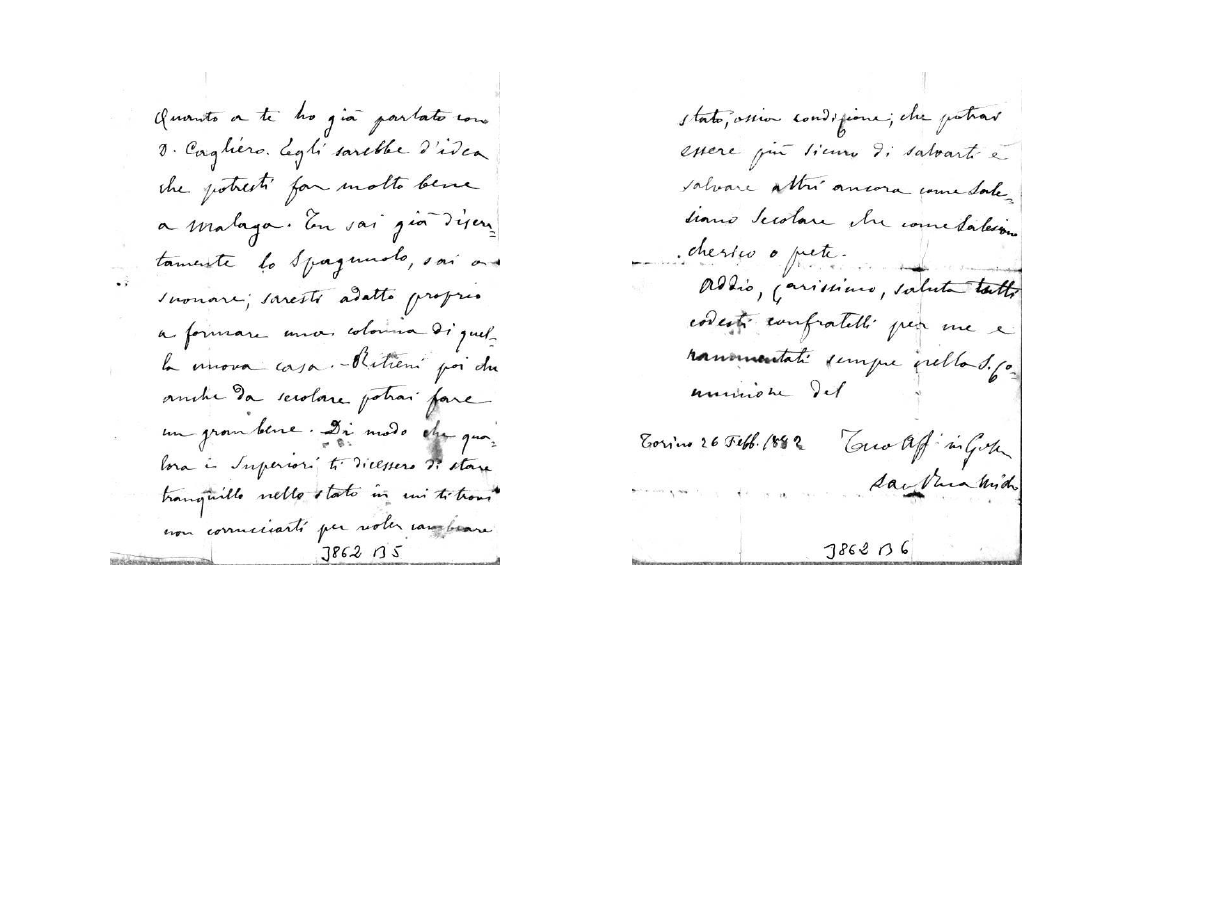 Quanto a te ho già parlato con
D. Cagliero. Egli sarebbe d'idea
che potresti far molto bene
a Malaga. Tu sai già discre=
tamente lo Spagnuolo, sai
suonare; saresti adatto proprio
a formare una colonna di quel-
la nuova casa. - Ritieni poi che
anche da secolare potrai fare
un gran bene. Di modo che qua=
lora i Superiori ti dicessero di stare
tranquillo nello stato in cui ti trovi
non corrucciarti per voler cambiare
3862 B 5
stato, ossia condizione; che potrai
essere più sicuro di salvarti e
salvare altri ancora come Sale=
siano Secolare che come Salesiano
cherico o prete.
Addio, Carissimo, saluta tutti
codesti confratelli per me e
rammentati sempre nella S. Co=
munione del
Torino 26 Febb. 1882
Tuo Aff in G.
Sac Rua Mich
3862 B 6